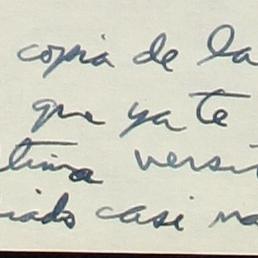 copia de la
que ya te
tima versi
iado casi na